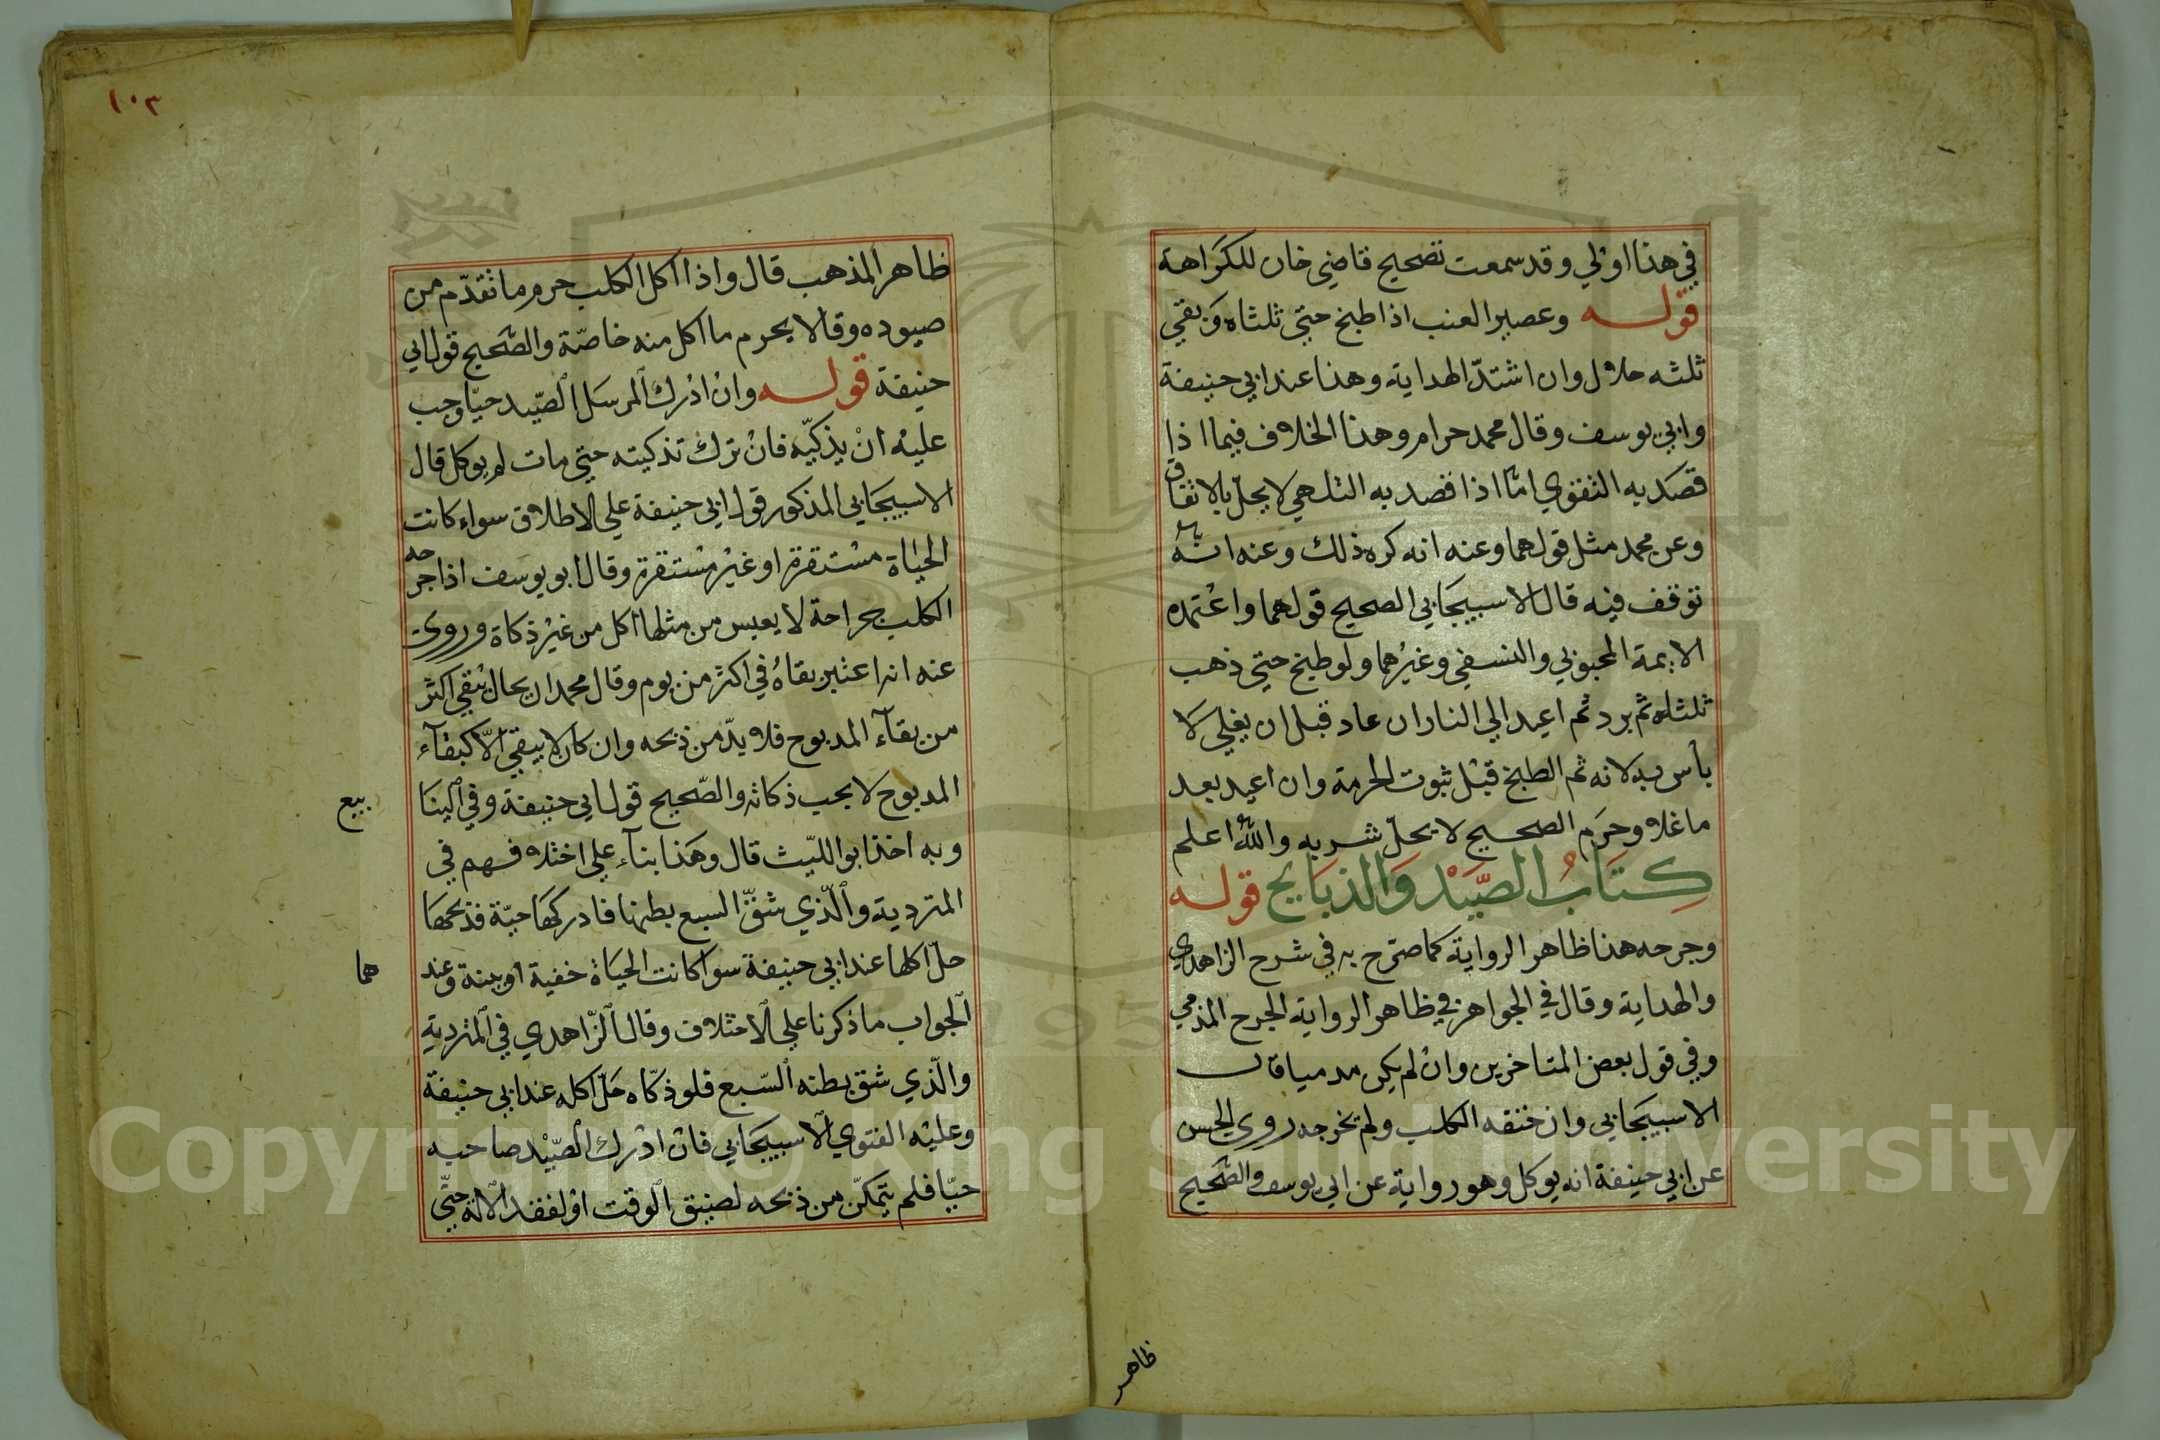 في هذا اولي وقد سمعت تصحيح قاضي خان للكراهة
قوله وعصير العنب اذا طبخ حتي ثلثاه وبقي
ثلثه حلال وان اشتد الهداية وهذا عند ابي حنيفة
وابي يوسف وقال محمد حرام وهذا الخلاف فيما اذا
قصد به التقوي اما اذا قصد به التلهي لا يحل بالاتفاق
وعن محمد مثل قولهما وعنه انه كره ذلك وعنه انه
توقف فيه قال الاسبيجابي الصحيح قولهما واعتمده
الايمة المحبوبي والنسفي وغيرهما ولو طبخ حتي ذهب
ثلثاه ثم برد ثم اعيد الي النار ان عاد قبل ان يغلي لا
بأس به لانه ثم الطبخ قبل ثبوت الحرمة وان اعيد بعد
ما غلا وحرم الصحيح لا يحل شربه والله اعلم
كتاب الصيد والذبايح قوله
وجرحه هذا ظاهر الرواية كما صرح به في شرح الزاهدي
والهداية وقال في الجواهر في ظاهر الرواية الجرح المدمي
وفي قول بعض المتاخرين وان لم يكن مدميا قال
الاسبيجابي وان خنقه الكلب ولم يجرحه روي الحسن
عن ابي حنيفة انه يوكل وهو رواية عن ابي يوسف والصحيح
ظاهر
١٠٣
ظاهر المذهب قال واذا اكل الكلب حرم ما تقدم من
صيوده وقالا يحرم ما اكل منه خاصة والصحيح قول ابي
حنيفة قوله وان ادرك المرسل الصيد حيا وجب
عليه ان يذكيه فان ترك تذكيته حتي مات لم يوكل قال
الاسبيجابي المذكور قول ابي حنيفة علي الاطلاق سواء كانت
الحياة مستقرة او غير مستقرة وقال ابو يوسف اذا جرحه
الكلب جراحة لا يعيس من مثلها اكل من غير ذكاة وروي
عنه انه اعتبر بقاه في اكثر من يوم وقال محمد ان بحال يبقي اكثر
من بقآء المدبوح فلا بد من ذبحه وان كان لا يبقي الا كبقآء
المدبوح لا يجب ذكاته والصحيح قول ابي حنيفة وفي الينا
بيع
وبه اخذ ابو الليث قال وهذا بنآء علي اختلافهم في
المتردية والذي شق السبع بطنها فادركها حية فذبحها
حل اكلها عند ابي حنيفة سوا كانت الحياة خفية او بينة وعند
هما
الجواب ما ذكرنا علي الاختلاف وقال الزاهدي في المتردية
والذي شق بطنه السبع فلو ذكاه حل اكله عند ابي حنيفة
وعليه الفتوي الاسبيجابي فان ادرك الصيد صاحبه
حيا فلم يتمكن من ذبحه لضيق الوقت او لفقد الالة حتي
Copyright © King Saud University